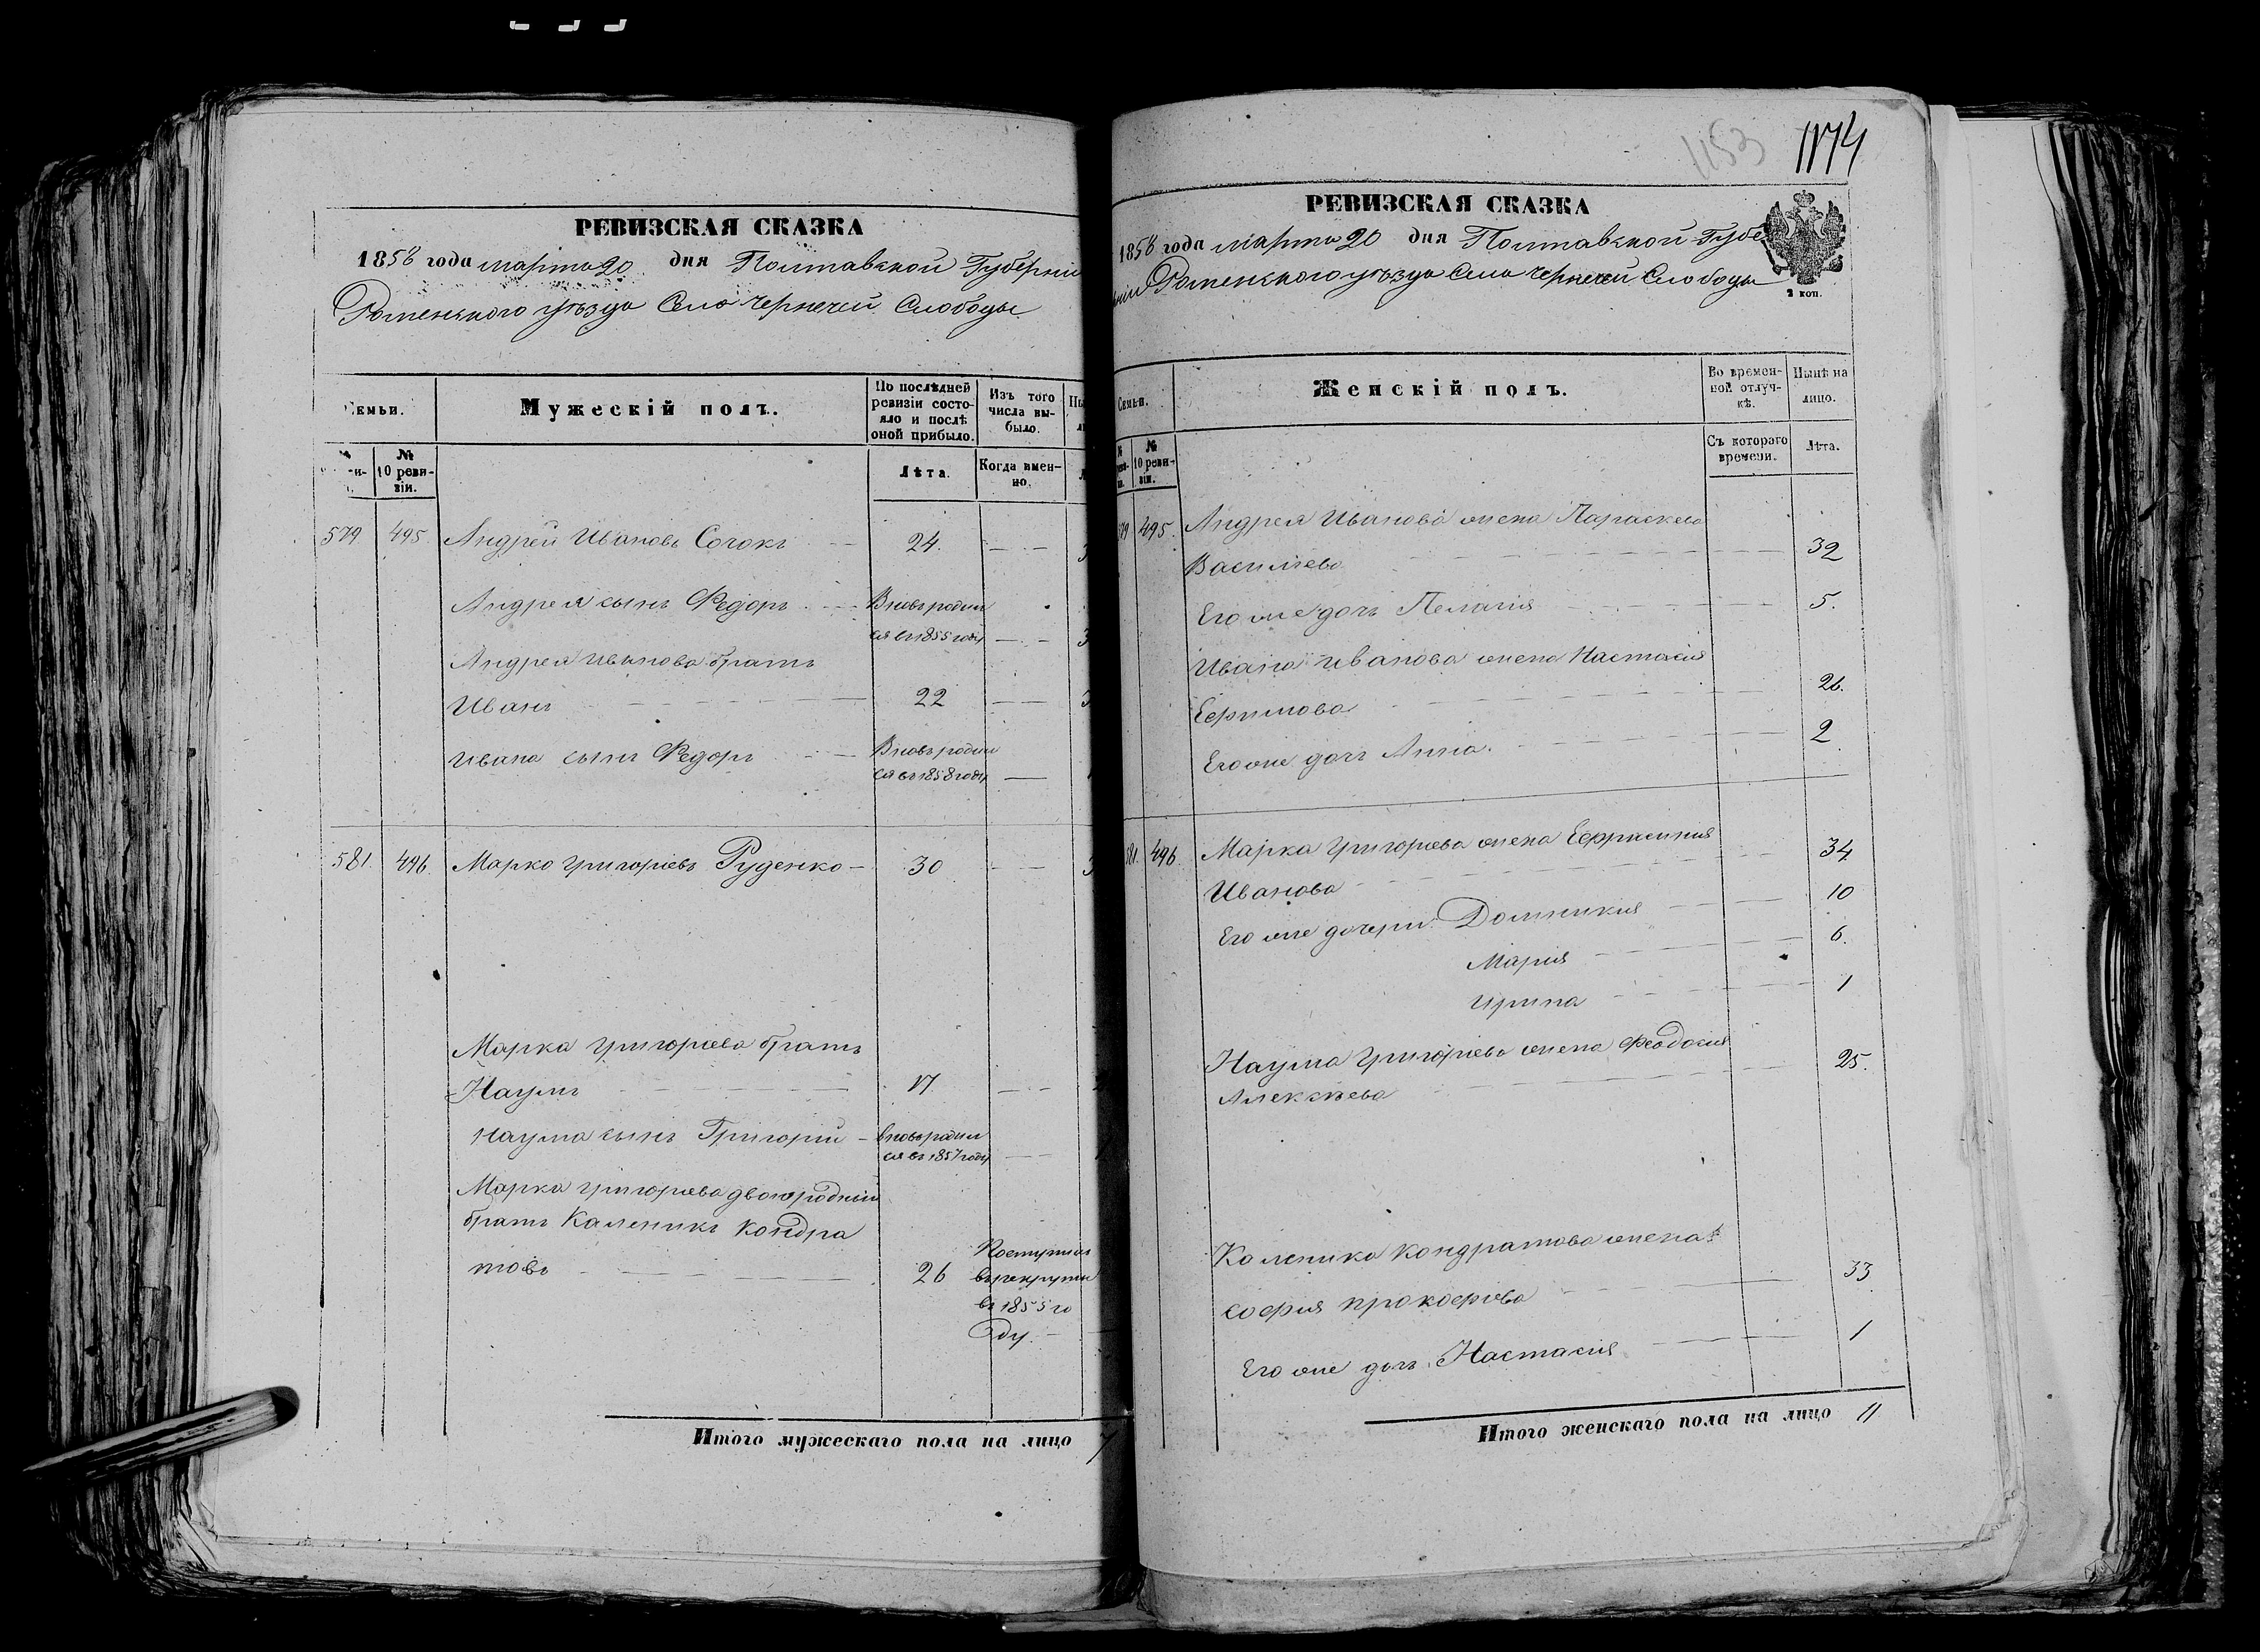 РЕВИЗСКАЯ СКАЗКА
1858 года марта 20 дня Полтавской Губерніи
Роменского уѣзда Села Чернечей Слободы
Семьи.
Мужескій полъ.
По послѣдней
ревизіи состо-
яло и послѣ
оной прибыло.
Изъ того
числа вы-
было.
№
10 реви-
зіи.
Лѣта.
Когда имен-
но.
579 495. Андрей Ивановъ Сочокъ 24.
Андрея сынъ Федоръ Вновь родил
ся въ 1855 году
Андрея Иванова братъ
Иванъ 22
Ивана сынъ Федоръ Вновь родил
ся въ 1858 году
581. 496. Марко Григоріевъ Руденко 30
Марка Григоріева братъ
Наумъ 17
Наума сынъ Григорій вновь родил
ся въ 1857 году
Марка Григоріева двоюродный
братъ Каленикъ Кондра
товъ 26 Поступил
въ рекруты
въ 1855 го
ду.
Итого мужескаго пола на лицо 7
1153 1174
РЕВИЗСКАЯ СКАЗКА
1858 года марта 20 дня Полтавской Губе
рніи Роменского уѣзда Села Чернечей Слободы
2 коп.
Семьи.
Женскій полъ.
Во времен-
ной отлуч-
кѣ.
Нынѣ на
лицо.
№
10 реви-
зіи.
Съ котораго
времени.
Лѣта.
579 495. Андрея Иванова жена Параскева
Василіева 32
Его же дочь Пелагія 5.
Ивана Иванова жена Настасія
Ефимова 26.
Его же дочь Анна. 2
581. 496. Марка Григоріева жена Ефросинія
Иванова 34
Его же дочери: Домникия 10
Марія 6.
Ирина 1
Наума Григоріева жена Феодосия
Алексѣева 25.
Каленика Кондратова жена
София Прокофіева 33
Его же дочь Настасия 1
Итого женскаго пола на лицо 11